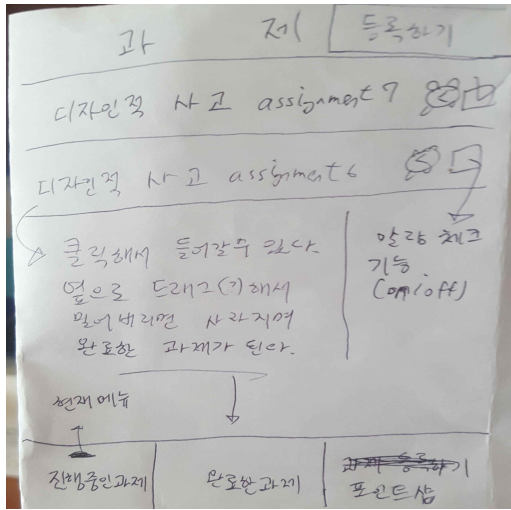 과 제 등록하기
디자인적 사고 assignment 7
디자인적 사고 assignment 6
클릭해서 들어갈수 있다.
옆으로 드래그(?)해서
밀어버리면 사라지며
완료한 과제가 된다.
알람 체크
기능.
(on/off)
현재메뉴
진행중인과제
완료한과제
과제 등록하기
포인트샵